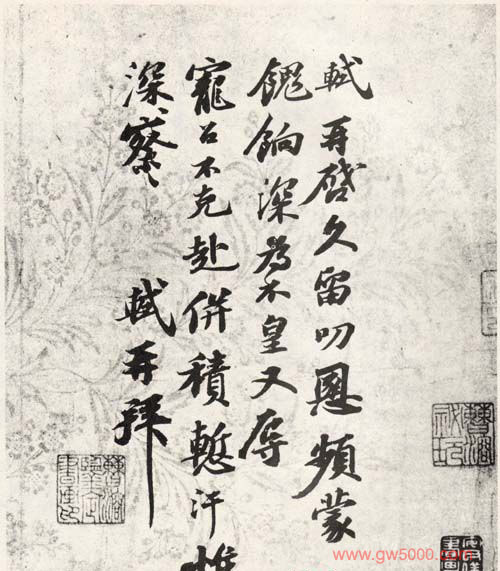 軾再啓久留叨恩頻蒙
餽餉深為不皇又辱
寵召不克赴併積慙汗惟
深〻察〻 軾再拜
www.gw5000.com